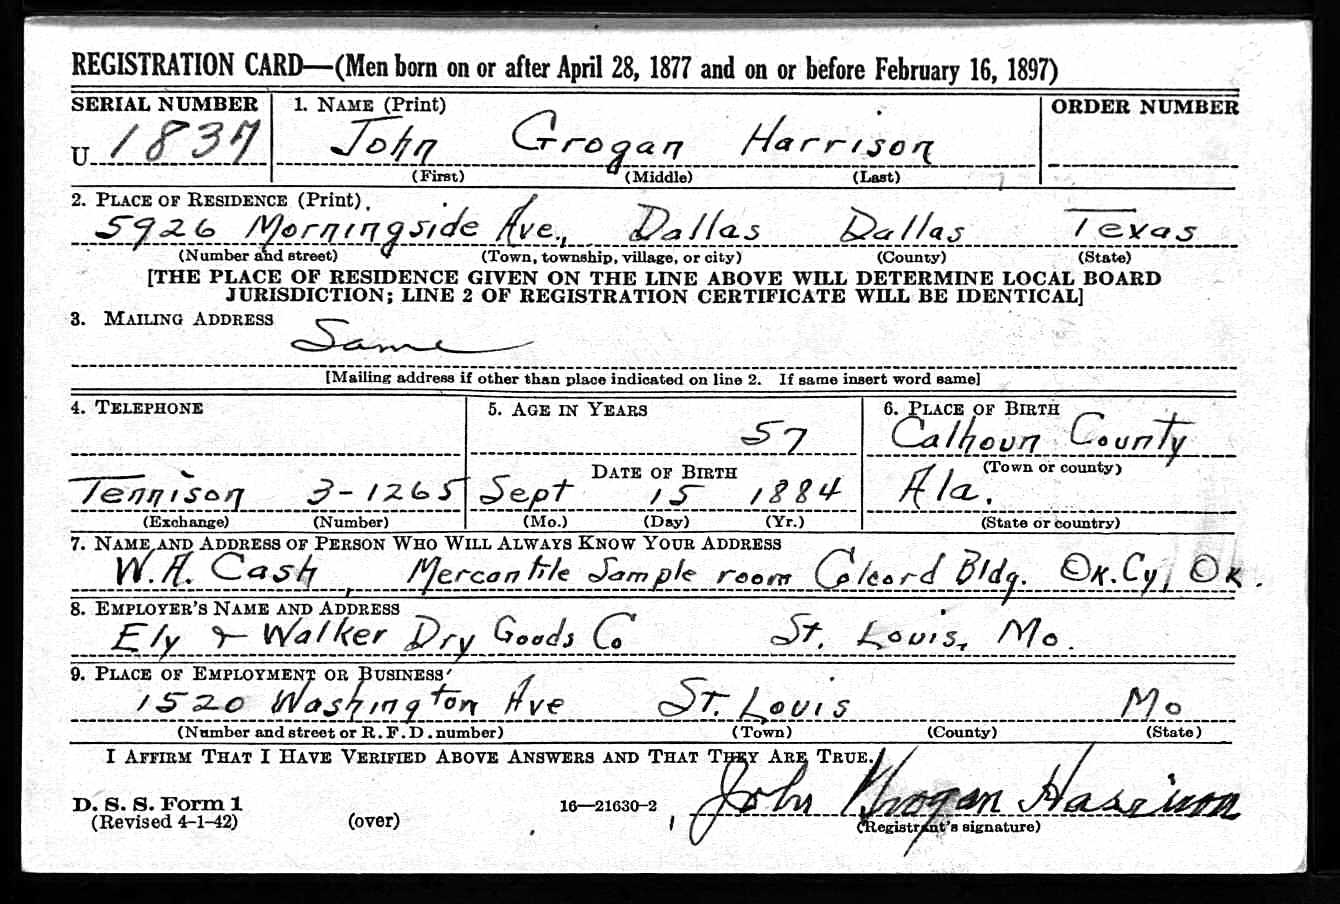 REGISTRATION CARD—(Men born on or after April 28, 1877 and on or before February 16, 1897)
SERIAL NUMBER 1. NAME (Print) ORDER NUMBER
U 1837 John Grogan Harrison
(First) (Middle) (Last)
2. PLACE OF RESIDENCE (Print)
5926 Morningside Ave., Dallas Dallas Texas
(Number and street) (Town, township, village, or city) (County) (State)
[THE PLACE OF RESIDENCE GIVEN ON THE LINE ABOVE WILL DETERMINE LOCAL BOARD
JURISDICTION; LINE 2 OF REGISTRATION CERTIFICATE WILL BE IDENTICAL]
3. MAILING ADDRESS
Same
[Mailing address if other than place indicated on line 2. If same insert word same]
4. TELEPHONE 5. AGE IN YEARS 6. PLACE OF BIRTH
57 Calhoun County
DATE OF BIRTH (Town or county)
Tennison 3-1265 Sept 15 1884 Ala.
(Exchange) (Number) (Mo.) (Day) (Yr.) (State or country)
7. NAME AND ADDRESS OF PERSON WHO WILL ALWAYS KNOW YOUR ADDRESS
W.A. Cash, Mercantile Sample room Colcord Bldg. Ok. Cy, Ok.
8. EMPLOYER'S NAME AND ADDRESS
Ely & Walker Dry Goods Co St. Louis, Mo.
9. PLACE OF EMPLOYMENT OR BUSINESS
1520 Washington Ave St. Louis Mo
(Number and street or R.F.D. number) (Town) (County) (State)
I AFFIRM THAT I HAVE VERIFIED ABOVE ANSWERS AND THAT THEY ARE TRUE.
D. S. S. Form 1 16—21630-2 John Grogan Harrison
(Revised 4-1-42) (over) (Registrant's signature)